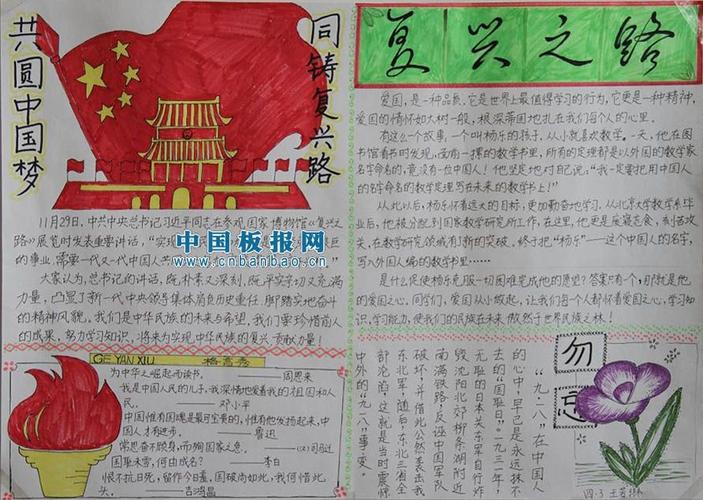 共圆中国梦
同铸复兴路
11月29日,中共中央总书记习近平同志在参观国家博物馆《复兴
路》展览时发表重要讲话,“实现
的事业,需要一代又一代中国人共
大家认为,总书记的讲话,既朴素又深刻,既平实学切又充满
力量,凸显了新一代中央领导集体肩负历史重任、脚踏实地奋斗
的精神风貌。我们是中华民族的未来与希望,我们要珍惜前人
的成果,努力学习知识,将来为实现中华民族的复兴贡献力量!
中国板报网
www.cnbanbao.cn
GE YAN XIU
格言秀
为中华之崛起而读书。——周恩来
我是中国人民的儿子,我深情地爱着我的祖国和人
民。——邓小平
中国惟有国魂是最可宝贵的,惟有他发扬起来,中国
人才有进步。——鲁迅
常思奋不顾身,而殉国家之急。——(汉)司马迁
国耻未雪,何由成名?——李白
恨不抗日死,留作今日羞。国破尚如此,我何惜此
头。——吉鸿昌
复兴之路
爱国,是一种品质,它是世界上最值得学习的行为,它更是一种精神,
爱国的情怀如大树一般,根深蒂固地扎在我们每个人的心里。
有这么一个故事,一个叫杨乐的孩子,从小就喜欢数学。一天,他在图
书馆看书时发现,面前一摞的数学书里,所有的定理都是以外国的数学家
名字命名的,竟没有一位中国人!他坚定地对自己说:“我一定要把用中国人
的名字命名的数学定理写在未来的数学书上!”
从此以后,杨乐怀着远大的目标,更加勤奋地学习。从北京大学数学系毕业
后,他被分配到国家数学研究所工作,在这里,他更是废寝忘食,刻苦攻
关,在数学研究领域有了新的突破。终于把“杨乐”——这个中国人的名字,
写入外国人编的数学书里……
是什么促使杨乐克服一切困难完成他的愿望?答案只有一个,那就是他
的爱国之心。同学们,爱国从小做起,让我们每个人都怀着爱国之心,学习知
识,学习能力,使我们的民族在未来傲然于世界民族之林!
“九·八”在中国人
的心中早已是永远抹不
去的“国耻日”。一九三一年,
无耻的日本关东军自行炸
毁沈阳北郊柳条湖附近
南满铁路反诬中国军队
破坏,并借此公然袭击我
东北军,随后,东北三省全
部沦陷,这就是当时震惊
中外的“九·八”事变。
勿忘
四.3 王